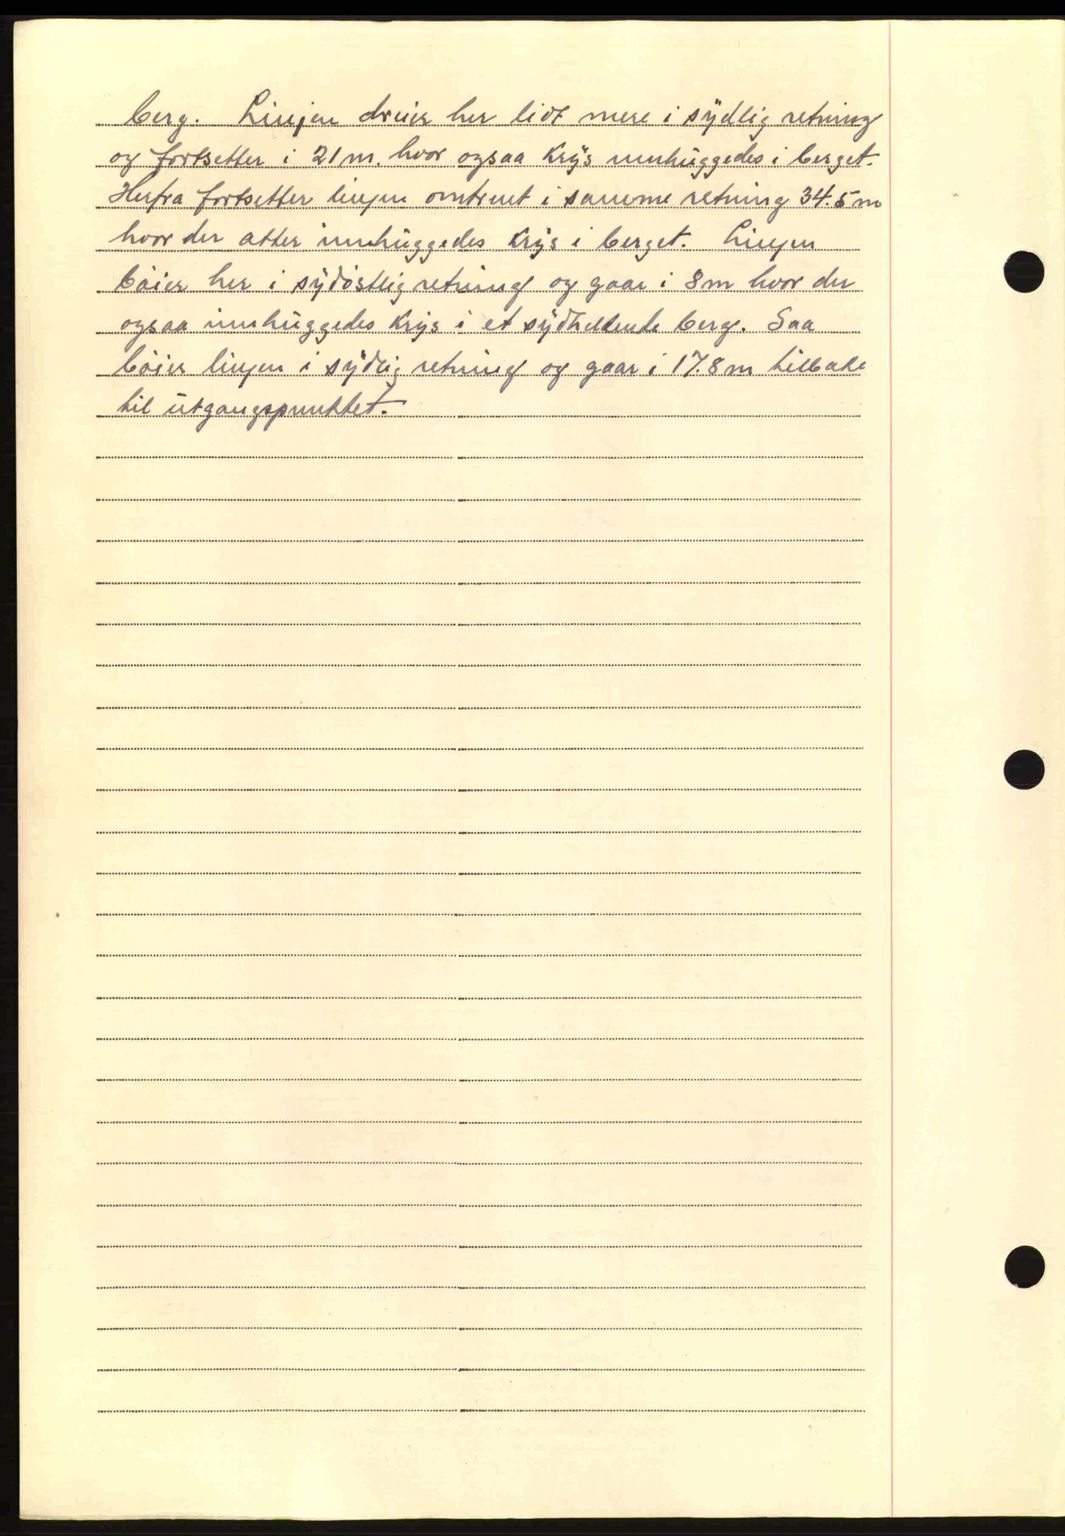 berg. Linjen dreier her lidt mere i sydlig retning
og fortsetter i 21 m. hvor ogsaa krys innhuggedes i berget.
Herfra fortsetter linjen omtrent i samme retning 34.5 m
hvor der atter innhuggedes krys i berget. Linjen
bøier her i sydøstlig retning og gaar i 8 m hvor der
ogsaa innhuggedes krys i et sydheldende berg. Saa
bøier linjen i sydlig retning og gaar i 17.8 m tilbake
til utgangspunktet.